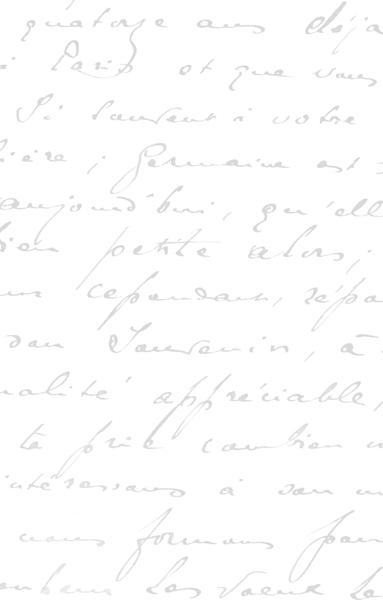 quatorze ans déjà
Paris et que vous
si souvent à votre
Germaine est
aujourd'hui, qu'elle
bien petite alors;
cependant, répa
Souvenir, à
nalité appréciable,
te prie combien
intéressans à son
nous formons pour
bonheur Les Voeux Le